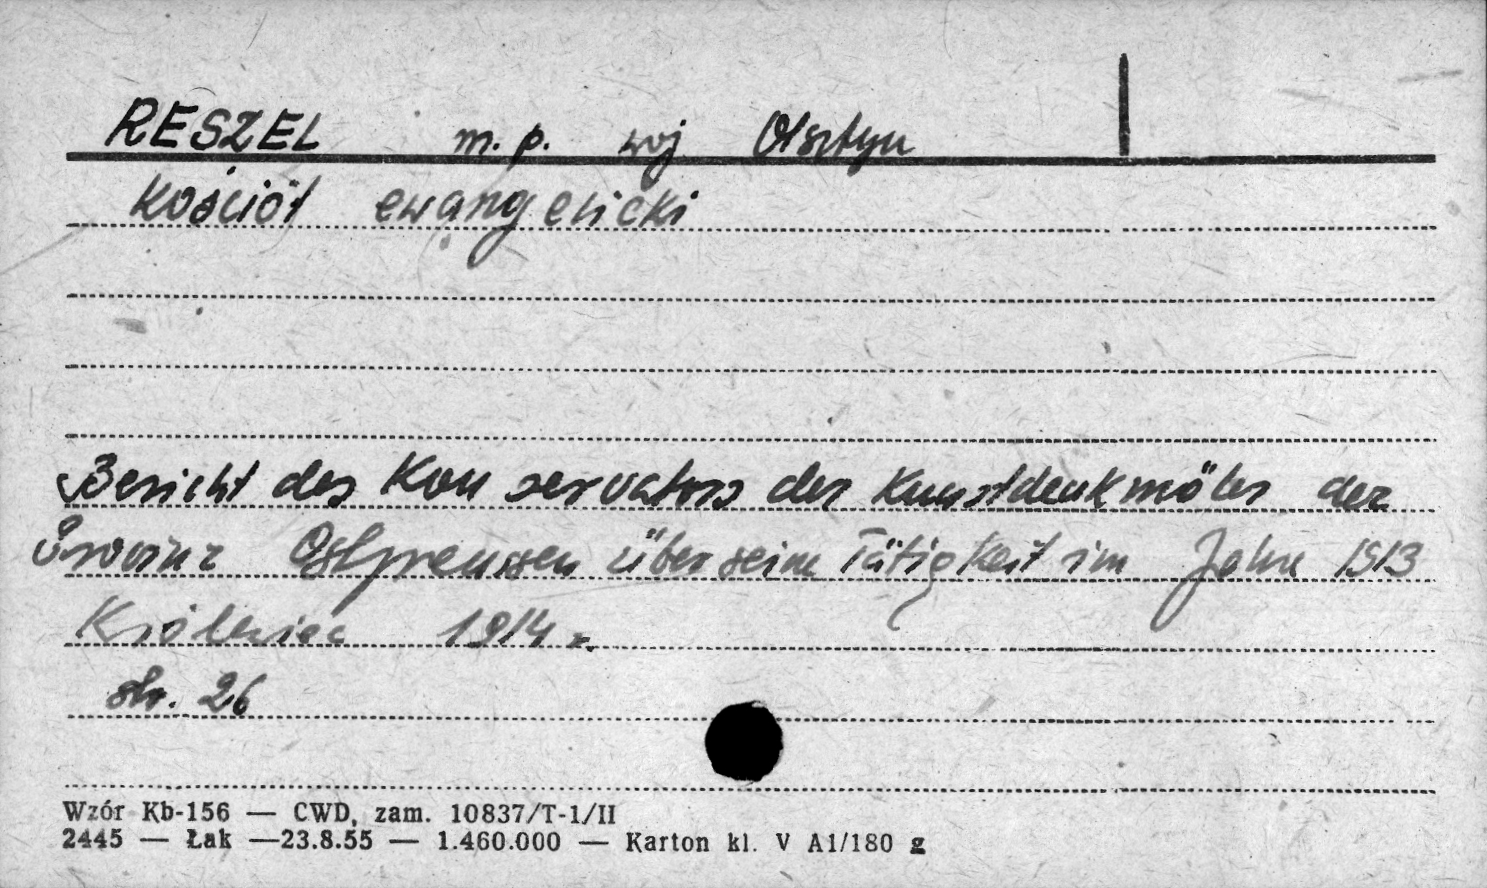 RESZEL m. p. woj Olsztyn
Kościół ewangelicki
Bericht des Konservators der Kunstdenkmäler der
Provinz Ostpreussen über seine Tätigkeit im Jahre 1913
Królewiec 1914 r.
str. 26
Wzór Kb-156 — CWD, zam. 10837/T-1/II
2445 — Łak —23.8.55 — 1.460.000 — Karton kl. V A1/180 g